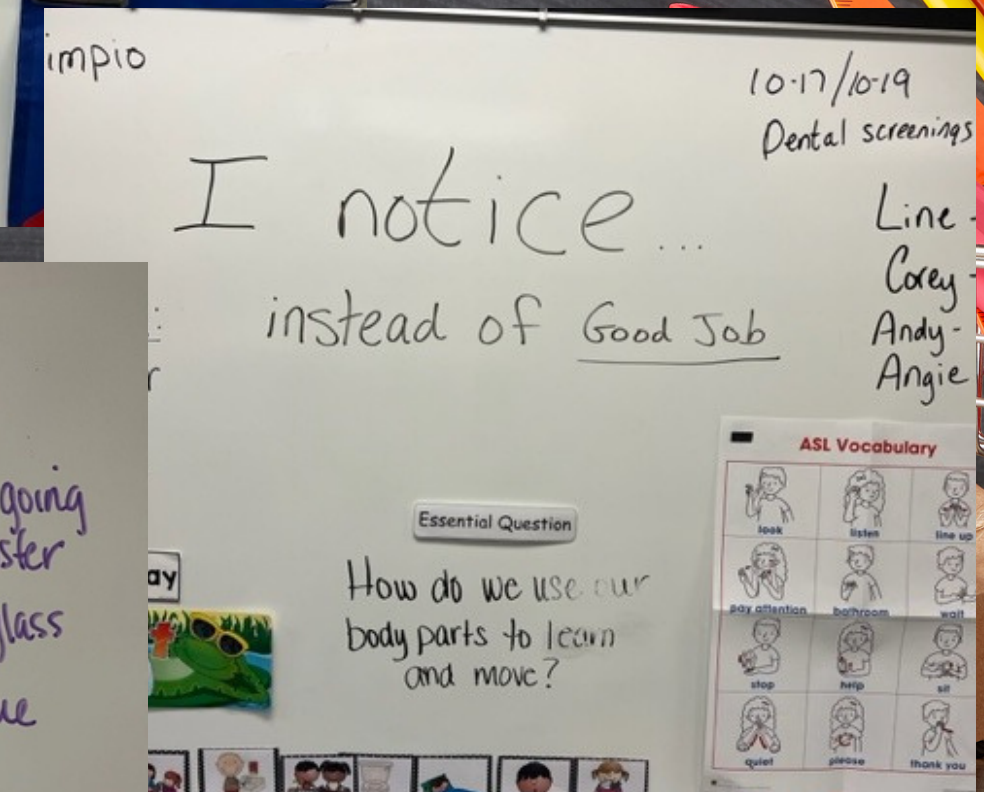 impio
10-17/10-19
Dental screenings
I notice...
instead of Good Job
Line -
Corey -
Andy -
Angie
going
ster
glass
ue
ay
Essential Question
How do we use our
body parts to learn
and move?
ASL Vocabulary
look listen line up
pay attention bathroom wait
stop help sit
quiet please thank you